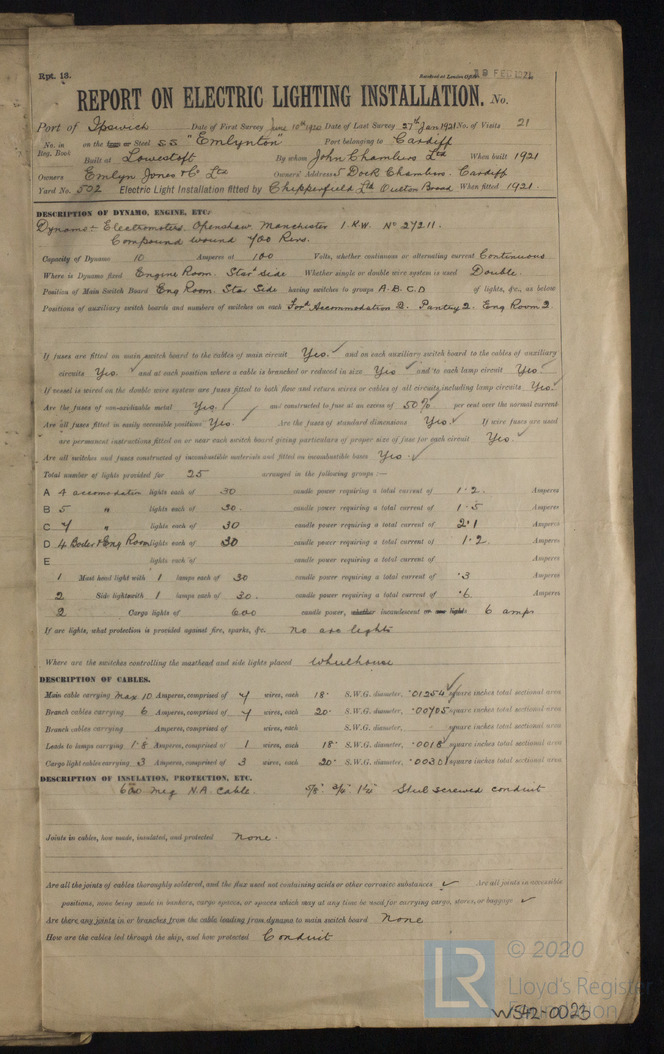 Rpt. 13.
Received at London Office 19 FEB 1921
REPORT ON ELECTRIC LIGHTING INSTALLATION. No.
Port of Ipswich Date of First Survey June 10th 1920 Date of Last Survey 27th Jan 1921 No. of Visits 21
No. in Reg. Book on the Iron or Steel S.S. "Emlynton" Port belonging to Cardiff
Built at Lowestoft By whom John Chambers Ltd When built 1921
Owners Emlyn Jones & Co Ltd Owners' Address 5 Dock Chambers. Cardiff
Yard No. 502 Electric Light Installation fitted by Chipperfield Ltd Oulton Broad When fitted 1921.
DESCRIPTION OF DYNAMO, ENGINE, ETC.
Dynamo - Electromotors. Openshaw, Manchester 1 K.W. No 27211.
Compound wound 700 Revs.
Capacity of Dynamo 10 Amperes at 100 Volts, whether continuous or alternating current Continuous
Where is Dynamo fixed Engine Room. Star'd side Whether single or double wire system is used Double.
Position of Main Switch Board Eng Room. Star Side having switches to groups A. B. C. D of lights, &c., as below
Positions of auxiliary switch boards and numbers of switches on each For'd Accommodation 2. Pantry 2. Eng Room 2.
If fuses are fitted on main switch board to the cables of main circuit Yes. ✓ and on each auxiliary switch board to the cables of auxiliary
circuits Yes. ✓ and at each position where a cable is branched or reduced in size Yes ✓ and to each lamp circuit Yes ✓
If vessel is wired on the double wire system are fuses fitted to both flow and return wires or cables of all circuits including lamp circuits Yes. ✓
Are the fuses of non-oxidizable metal Yes. ✓ and constructed to fuse at an excess of 50% per cent over the normal current
Are all fuses fitted in easily accessible positions Yes. ✓ Are the fuses of standard dimensions Yes. ✓ If wire fuses are used
are permanent instructions fitted on or near each switch board giving particulars of proper size of fuse for each circuit Yes. ✓
Are all switches and fuses constructed of incombustible materials and fitted on incombustible bases Yes. ✓
Total number of lights provided for 25 arranged in the following groups :—
A 4 accomodation lights each of 30 candle power requiring a total current of 1.2. Amperes
B 5 " lights each of 30. candle power requiring a total current of 1.5 Amperes
C 7 " lights each of 30 candle power requiring a total current of 2.1 Amperes
D 4 Boiler & Eng Room lights each of 30 candle power requiring a total current of 1.2 Amperes
E lights each of candle power requiring a total current of Amperes
1 Mast head light with 1 lamps each of 30 candle power requiring a total current of .3 Amperes
2 Side lights with 1 lamps each of 30. candle power requiring a total current of .6 Amperes
2 Cargo lights of 600 candle power, whether incandescent or arc lights 6 amps
If arc lights, what protection is provided against fire, sparks, &c. No arc lights
Where are the switches controlling the masthead and side lights placed Wheelhouse
DESCRIPTION OF CABLES.
Main cable carrying Max 10 Amperes, comprised of 7 wires, each 18. S.W.G. diameter, .01254 ✓ square inches total sectional area
Branch cables carrying 6 Amperes, comprised of 7 wires, each 20. S.W.G. diameter, .00705 square inches total sectional area
Branch cables carrying Amperes, comprised of wires, each S.W.G. diameter, square inches total sectional area
Leads to lamps carrying 1.8 Amperes, comprised of 1 wires, each 18. S.W.G. diameter, .0018 square inches total sectional area
Cargo light cables carrying 3 Amperes, comprised of 3 wires, each 20. S.W.G. diameter, .0030 square inches total sectional area
DESCRIPTION OF INSULATION, PROTECTION, ETC.
600 meg N.A. Cable. 5/8" 3/4" 1¼" Steel screwed conduit
Joints in cables, how made, insulated, and protected None.
Are all the joints of cables thoroughly soldered, and the flux used not containing acids or other corrosive substances ✓ Are all joints in accessible
positions, none being made in bunkers, cargo spaces, or spaces which may at any time be used for carrying cargo, stores, or baggage ✓
Are there any joints in or branches from the cable leading from dynamo to main switch board None
How are the cables led through the ship, and how protected Conduit
© 2020
LR
Lloyd's Register
Foundation
WS42-0023